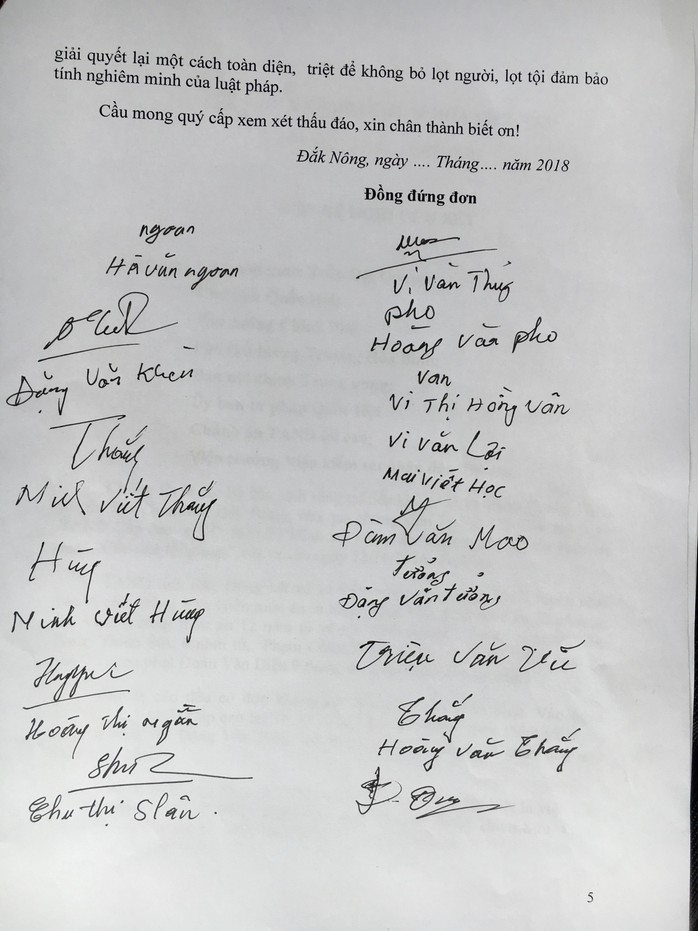 giải quyết lại một cách toàn diện, triệt để không bỏ lọt người, lọt tội đảm bảo
tính nghiêm minh của luật pháp.
Cầu mong quý cấp xem xét thấu đáo, xin chân thành biết ơn!
Đắk Nông, ngày .... Tháng.... năm 2018
Đồng đứng đơn
ngoan
Hà văn ngoan
Đặng Văn Khèn
Thắng
Minh Viết Thắng
Hùng
Minh Viết Hùng
Hoàng thị ngắn
Chu thị Slân.
Vi Văn Thủy
pho
Hoàng văn pho
Van
Vi Thị Hồng Vân
Vi văn Lợi
Mai Viết Học
Đàm Văn Mao
tưởng
Đặng Văn tưởng
Triệu văn
Thắng
Hoàng Văn Thắng
5